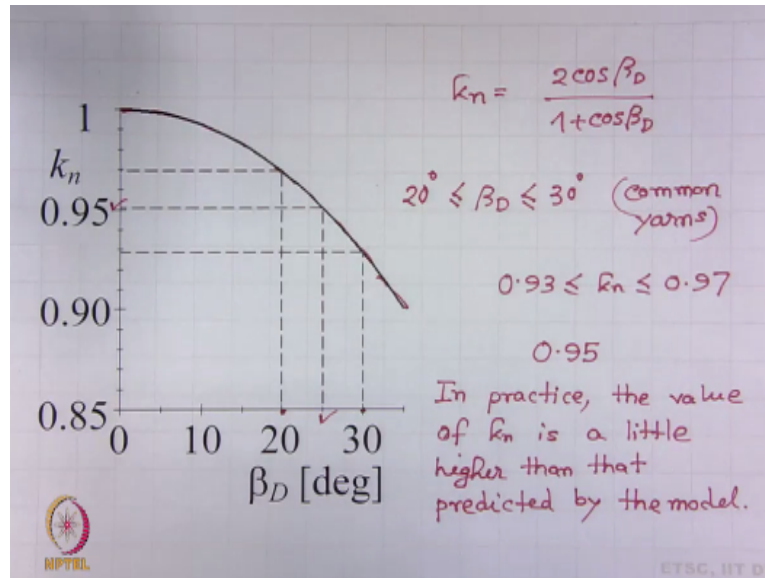 1
k_n
0.95
0.90
0.85
0 10 20 30
β_D [deg]
k_n = 2cosβ_D / 1+cosβ_D
20° ≤ β_D ≤ 30° (common yarns)
0.93 ≤ k_n ≤ 0.97
0.95
In practice, the value
of k_n is a little
higher than that
predicted by the model.
NPTEL
ETSC, IIT D